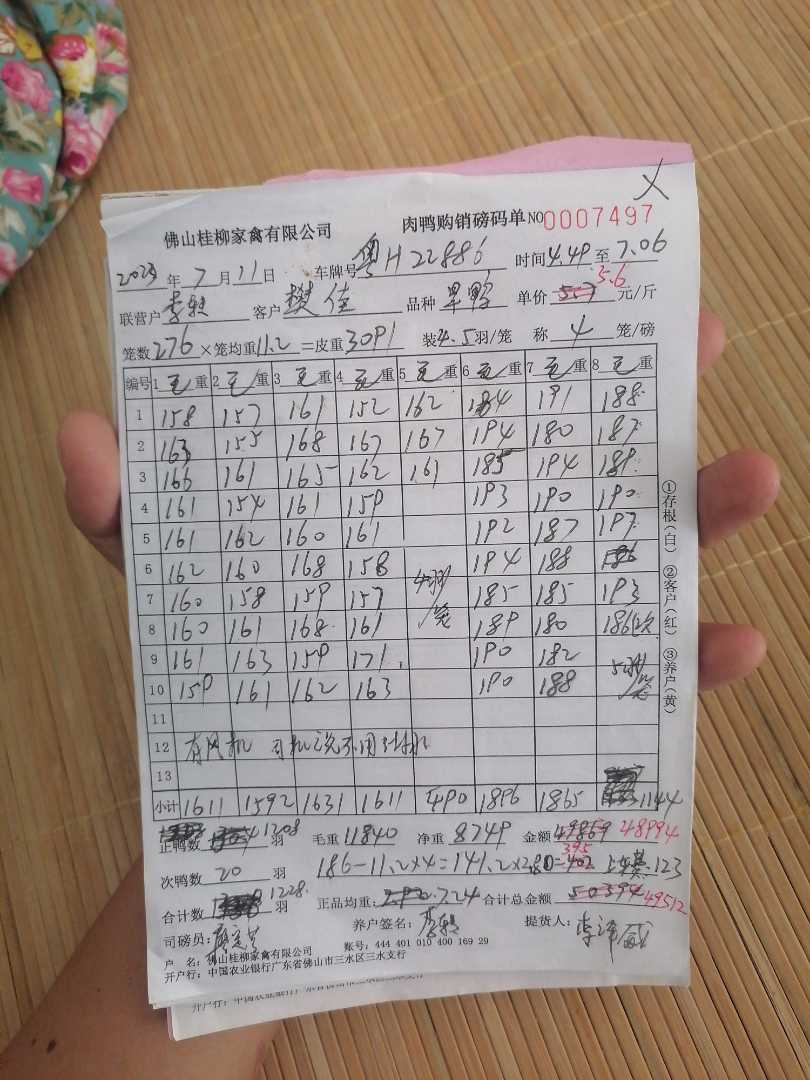 佛山桂柳家禽有限公司 肉鸭购销磅码单 NO 0007497
2023 年 7 月 11 日 车牌号 粤H22886 时间 4.49 至 7.06
联营户 客户 樊佳 品种 旱鸭 单价 5.57 5.6 元/斤
笼数 276 ×笼均重 11.2 =皮重 3091 装 4.5 羽/笼 称 4 笼/磅
编号 1 毛 重 2 毛 重 3 毛 重 4 毛 重 5 毛 重 6 毛 重 7 毛 重 8 毛 重
1 158 157 161 152 162 184 191 188
2 163 155 168 167 167 194 180 187
3 166 161 165 162 161 185 194 189
4 161 154 161 159 193 190 190
5 161 162 160 161 192 187 197
6 162 160 168 158 4羽 194 188 186
7 160 158 159 157 /笼 185 185 193
8 160 161 168 161 189 180 186次
9 161 163 159 171 190 182 5羽
10 159 161 162 163 190 188 /笼
11
12 有风机 司机说不用
13
小计 1611 1592 1631 1611 490 1896 1865 1144
正鸭数 1208 羽 毛重 11840 净重 8749 金额 49869 48994
次鸭数 20 羽 186-11.2×4=141.2×280=402 395 123
合计数 1228 羽 正品均重: 7.24 合计总金额 50394 49512
司磅员: 养户签名: 提货人:
户 名: 佛山桂柳家禽有限公司 账号: 444 401 010 400 169 29
开户行: 中国农业银行广东省佛山市三水区三水支行
①存根(白) ②客户(红) ③养户(黄)